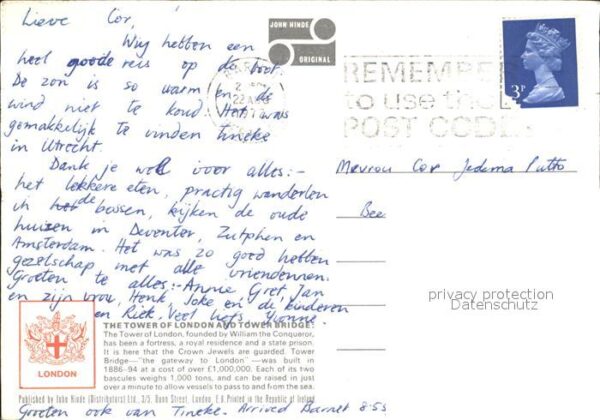 Lieve Cor,
Wij hebben een
heel goode reis op de boot.
De zon is so warm en de
wind niet te koud. Het was
gemakkelijk te vinden Tineke
in Utrecht.
Dank je wel voor alles:-
het lekkere eten, practig wanderlen
in de bossen, kijken de oude
huizen in Deventer, Zutphen en
Amsterdam. Het was zo goed hebben
gezelschap met alle vriendennen.
Groeten te alles:- Annie Gret Jan
en zijn vrou, Henk, Joke en de kinderen
en Riek. Veel liefs, Yvonne.
JOHN HINDE
ORIGINAL
REMEMBER
to use the
POST CODE
3P
Mevrou Cor Jedema Putto
Bee
privacy protection
Datenschutz
LONDON
THE TOWER OF LONDON AND TOWER BRIDGE:
The Tower of London, founded by William the Conqueror,
has been a fortress, a royal residence and a state prison.
It is here that the Crown Jewels are guarded. Tower
Bridge—"the gateway to London"—was built in
1886-94 at a cost of over £1,000,000. Each of its two
bascules weighs 1,000 tons, and can be raised in just
over a minute to allow vessels to pass to and from the sea.
Published by John Hinde (Distributors) Ltd., 3/5, Dunn Street, London, E.8 Printed in the Republic of Ireland
Groeten ook van Tineke. Arrived Barnet 8.55